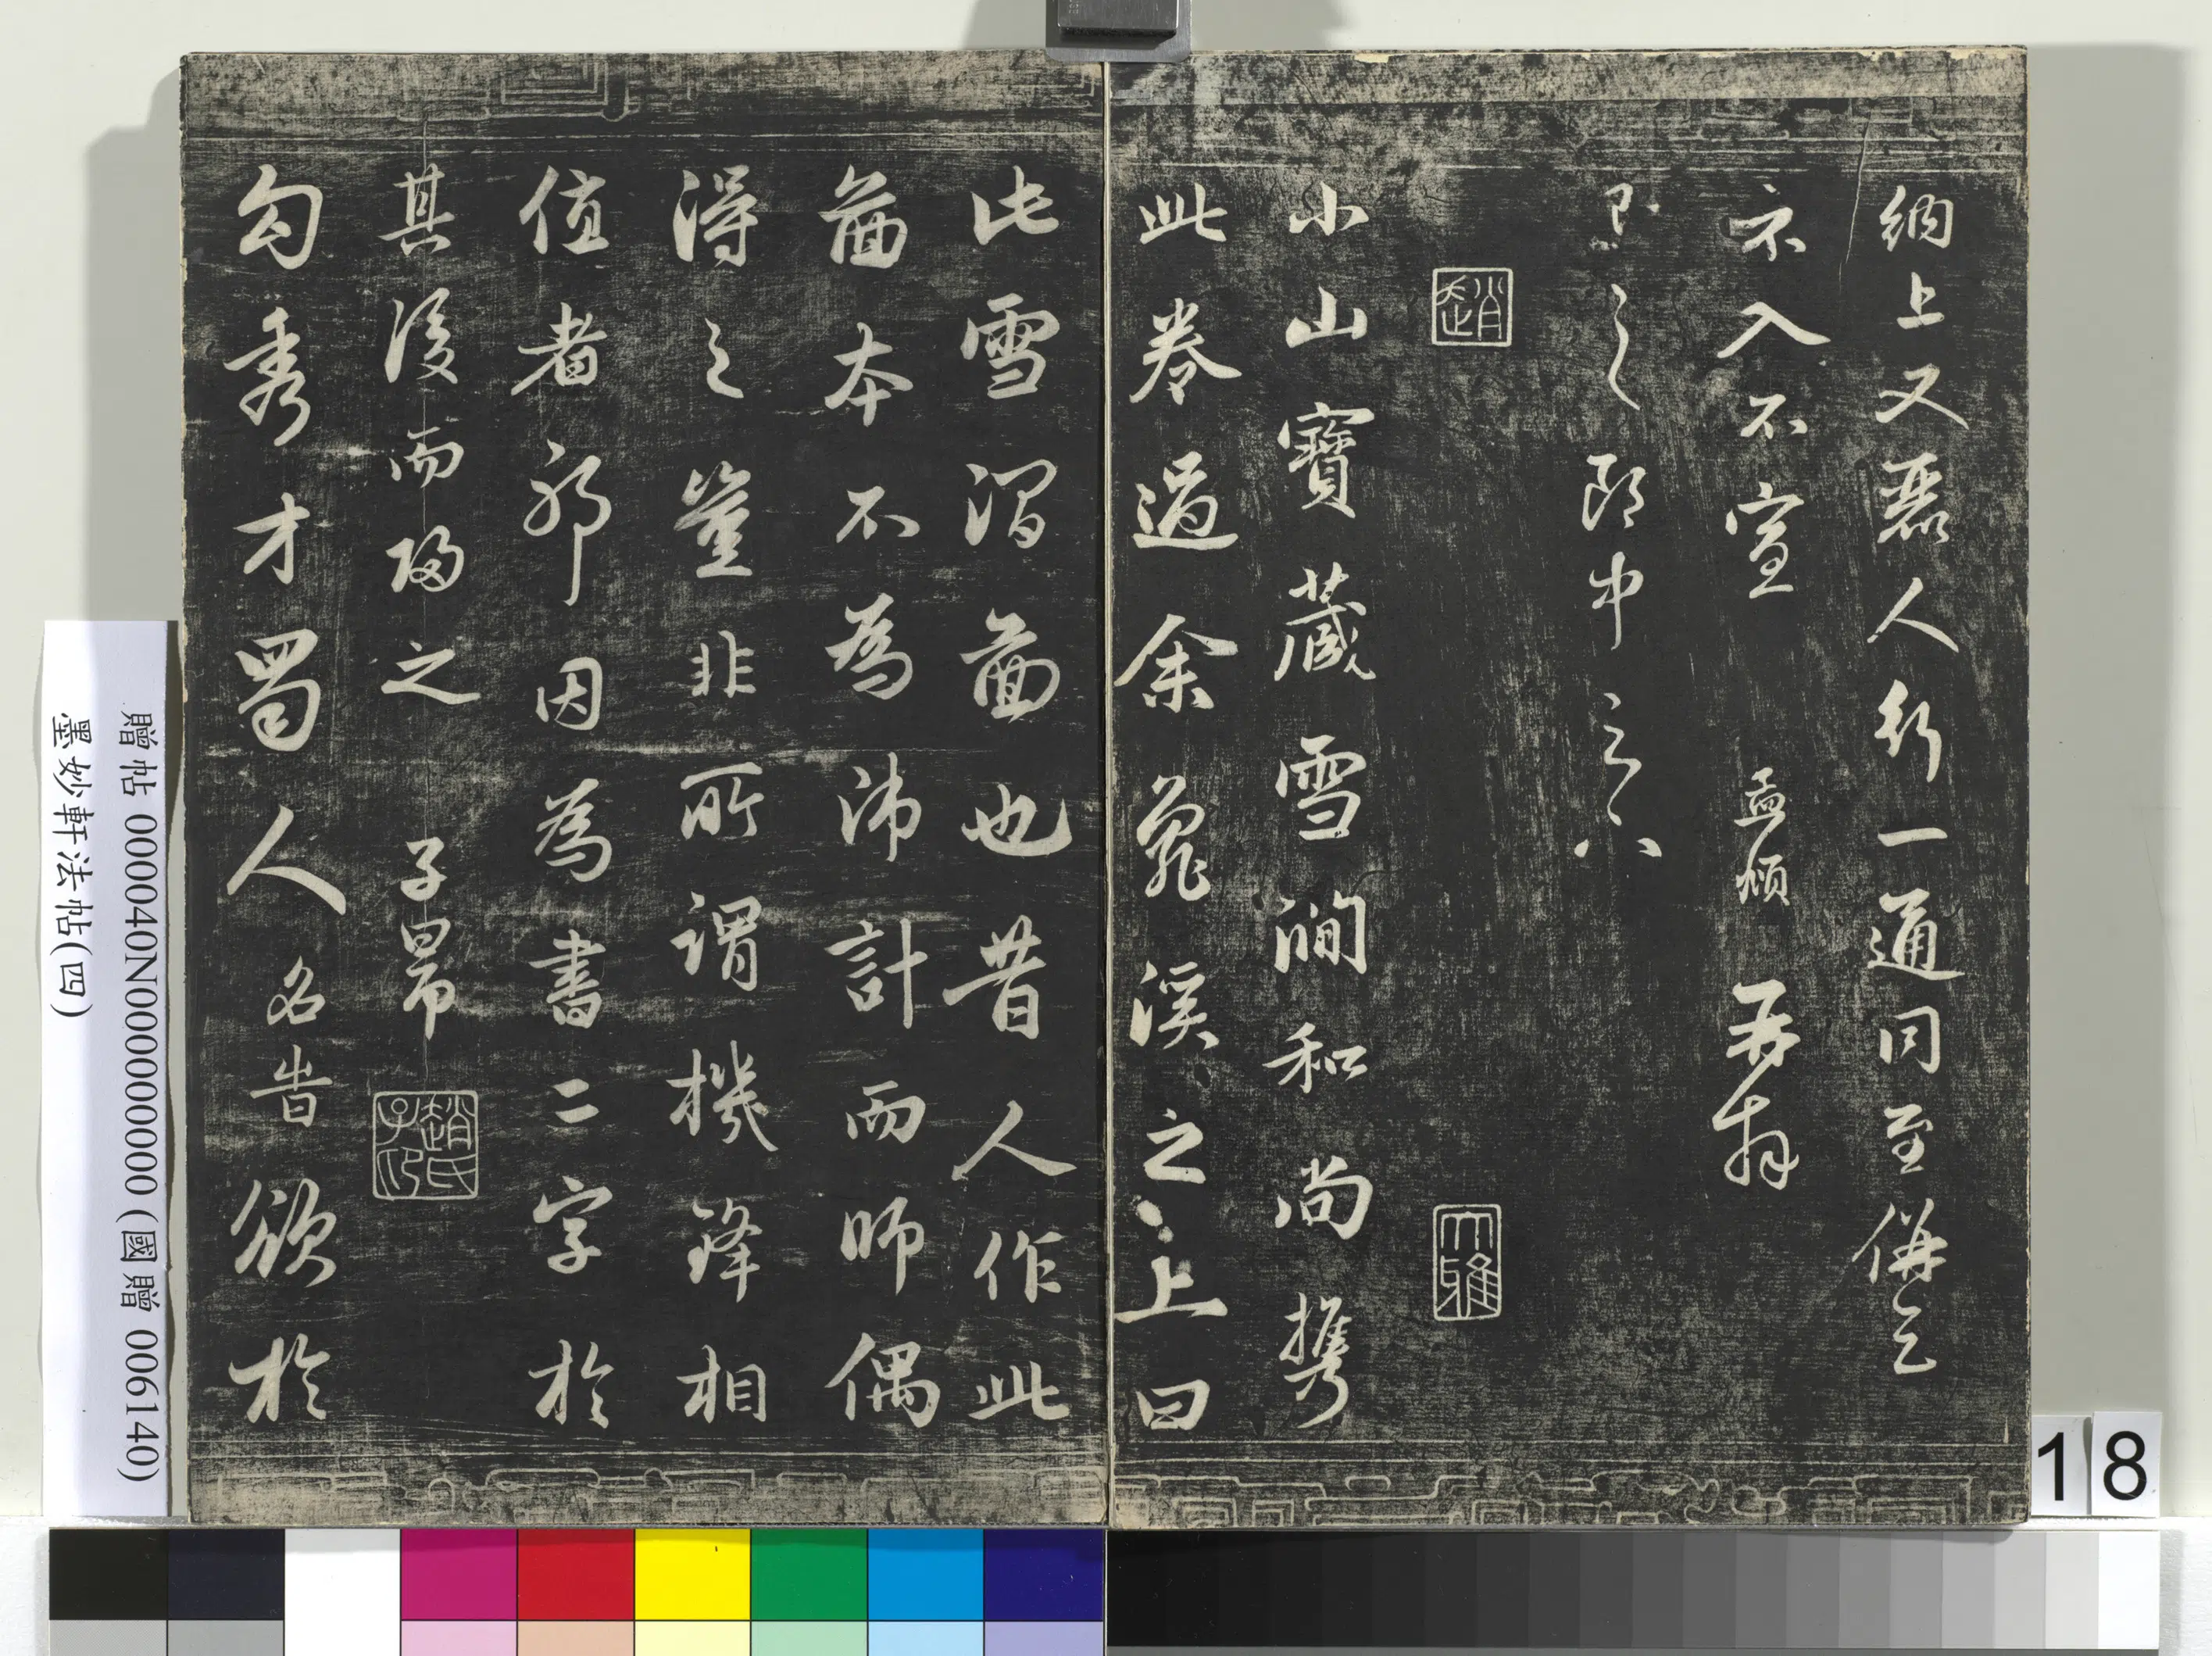 納上又麗人行一通同至併乞
示入不宣 孟頫 再拜
彥之郎中足下
趙
大雅
小山寶藏雪澗和尚攜
此卷過余龜溪之上曰
此雪澗畫也昔人作此
畫本不為沛計而師偶
得之豈非所謂機鋒相
值者邪因為書二字於
其後而歸之 子昂
趙氏子昂
勾秀才蜀人名昔欲於
贈帖 000040N000000000 (國贈 006140)
墨妙軒法帖(四)
18